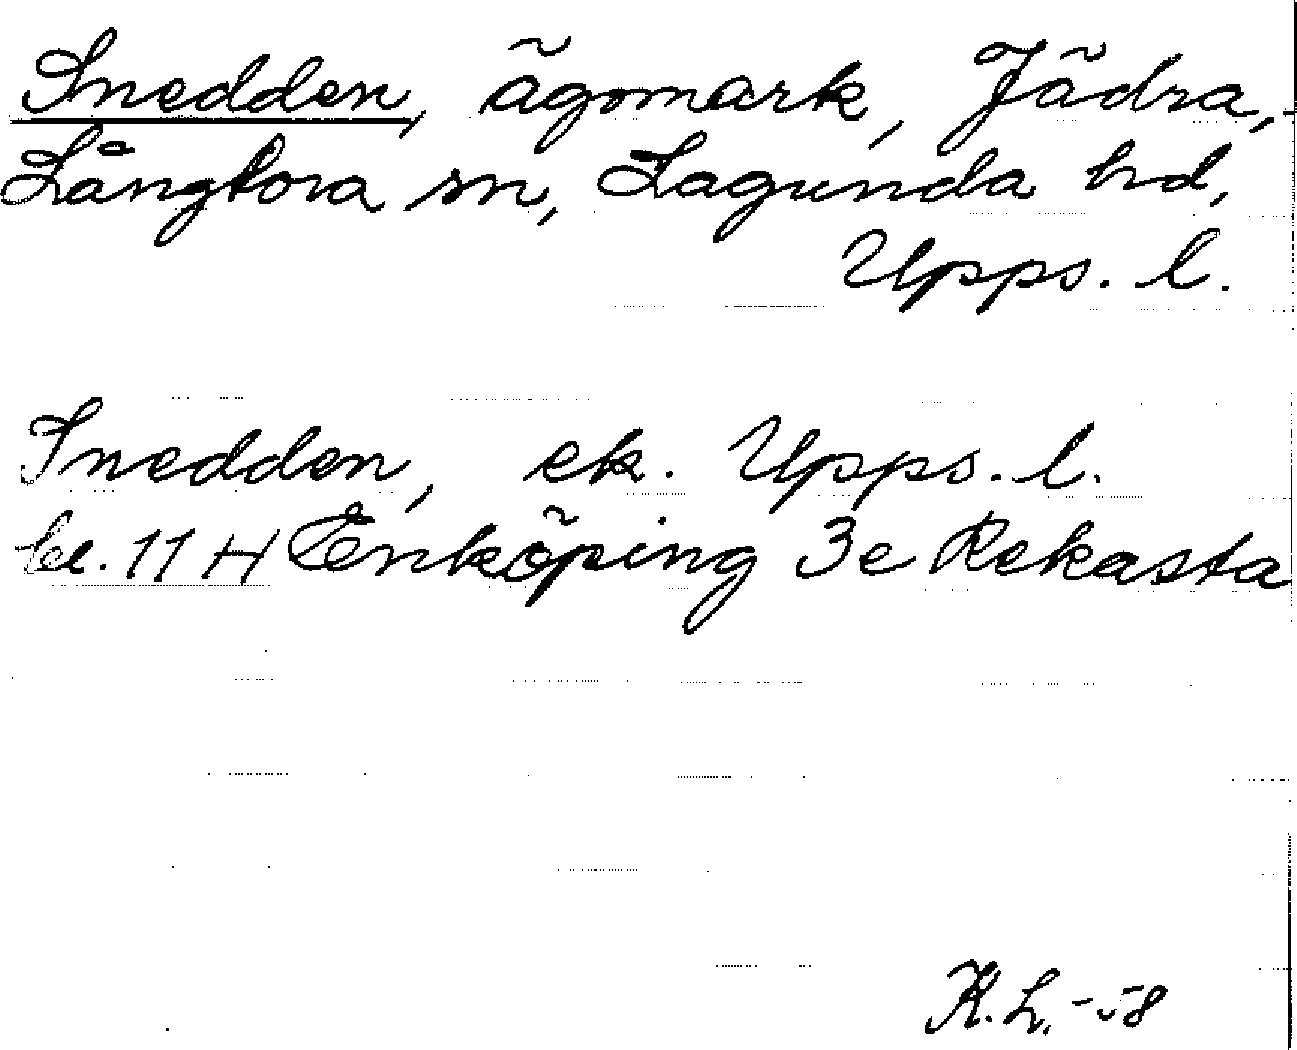 Snedden, ägomark, Jädra,
Långtora sn, Lagunda hd,
Upps. l.
Snedden, ek. Upps. l.
bl. 11 H Enköping 3e Rekasta
K.L. -58